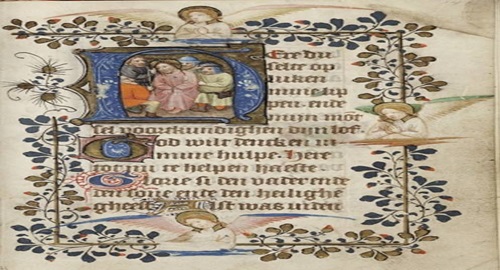 Here du
selte on
tuken
mine lip
pen. ende
mijn mot
sel voortkundighen dijn lof.
God wilt dencken in
mine hulpe. Here
te helpen haeste
Glorie si den vader ende
den sone ende den heilighe
gheest Alst was inden